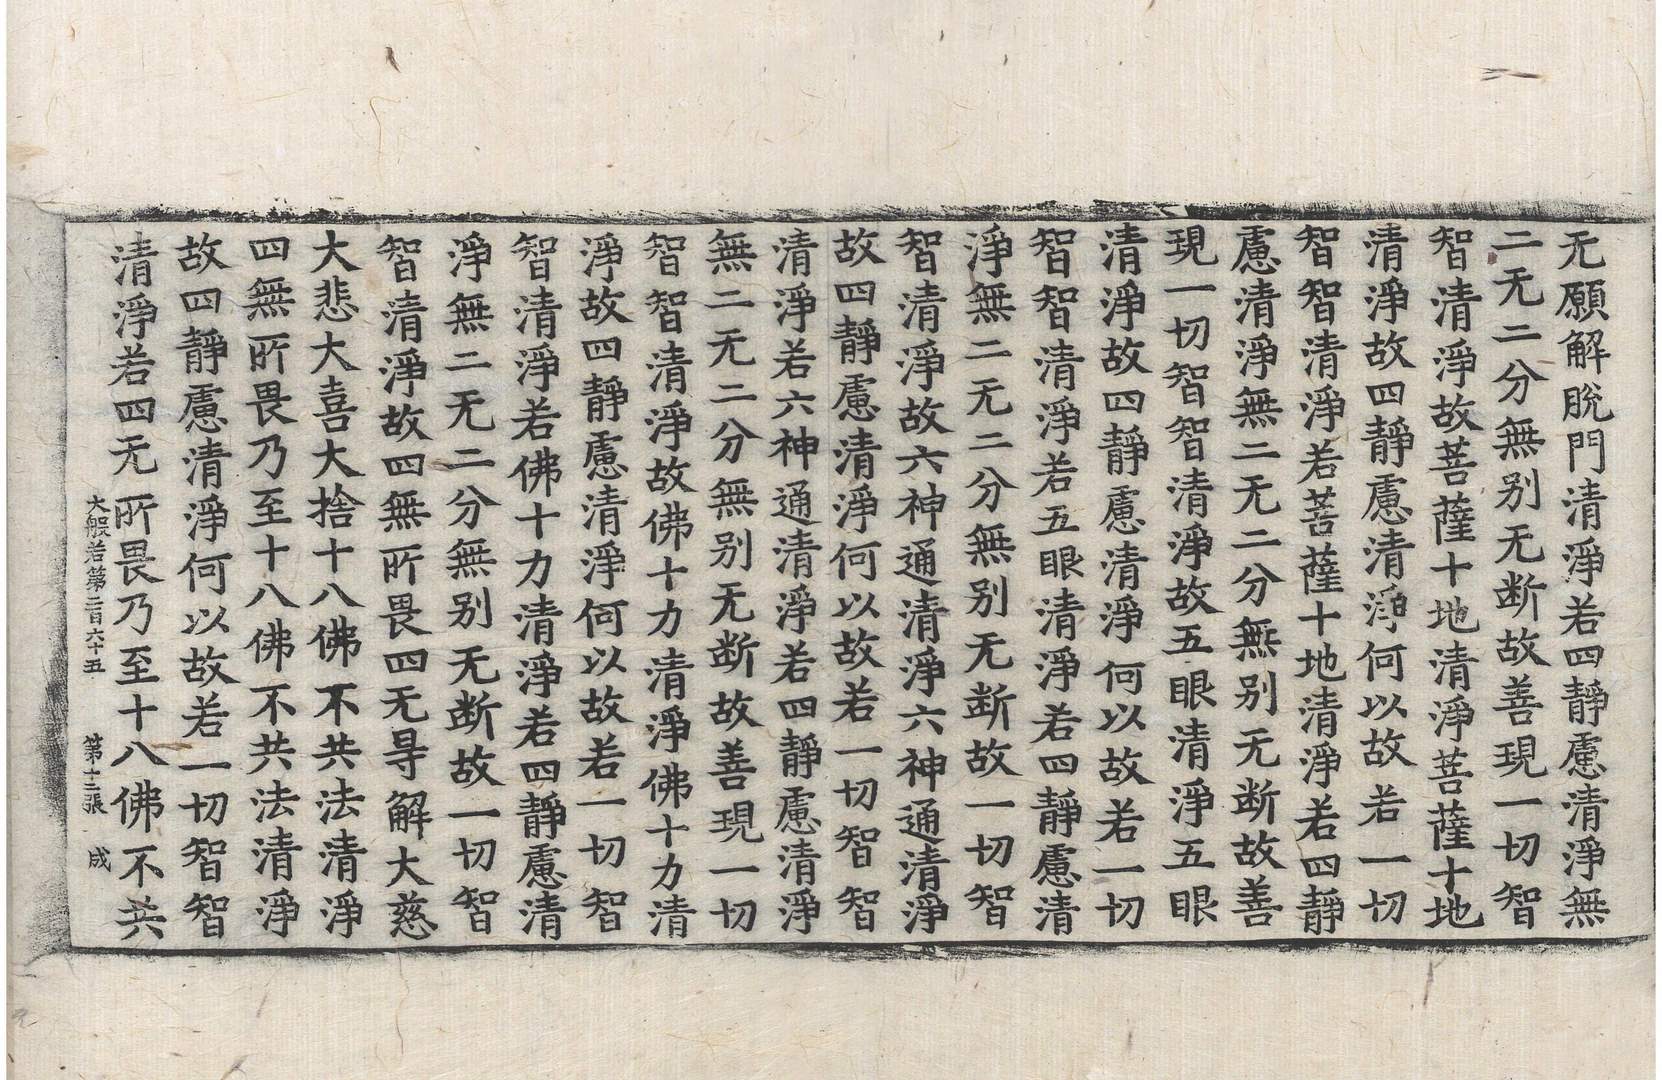 无願解脫門清淨若四靜慮清淨無
二无二分無别无断故善現一切智
智清淨故菩薩十地清淨菩薩十地
清淨故四靜慮清淨何以故若一切
智智清淨若菩薩十地清淨若四靜
慮清淨無二无二分無别无断故善
現一切智智清淨故五眼清淨五眼
清淨故四靜慮清淨何以故若一切
智智清淨若五眼清淨若四靜慮清
淨無二无二分無别无断故一切智
智清淨故六神通清淨六神通清淨
故四靜慮清淨何以故若一切智智
清淨若六神通清淨若四靜慮清淨
無二无二分無别无断故善現一切
智智清淨故佛十力清淨佛十力清
淨故四靜慮清淨何以故若一切智
智清淨若佛十力清淨若四靜慮清
淨無二无二分無别无断故一切智
智清淨故四無所畏四无㝵解大慈
大悲大喜大捨十八佛不共法清淨
四無所畏乃至十八佛不共法清淨
故四靜慮清淨何以故若一切智智
清淨若四无所畏乃至十八佛不共
大般若第二百六十五 第十三張 成